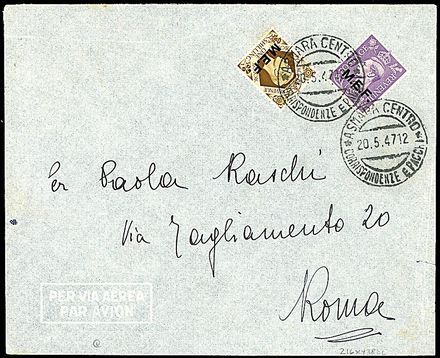 M.E.F.
M.E.F.
ASMARA CENTRO
20.5.4712
CORRISPONDENZE E PACCHI
ASMARA CENTRO
20.5.4712
CORRISPONDENZE E PACCHI
Paola Raschi
Via Tagliamento 20
Roma
PER VIA AEREA
PAR AVION